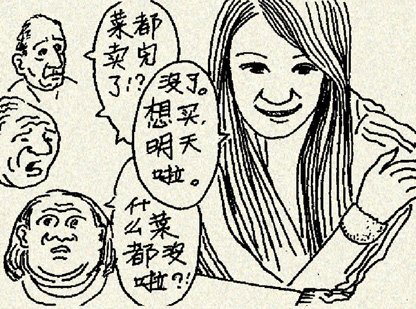 菜都
卖完
了!?
没了。
想买,
明天
啦。
什
么菜
都没
啦?!